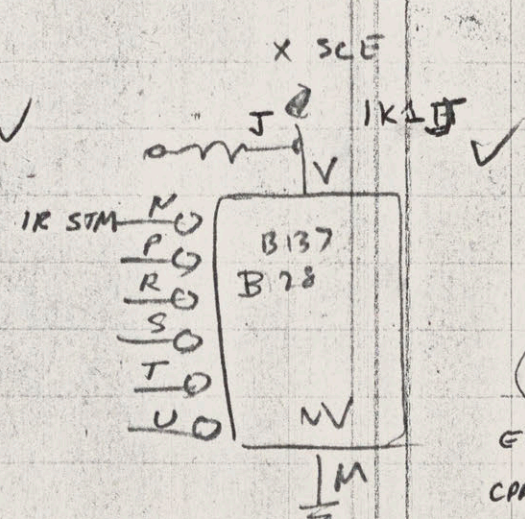 X SCE
J
1K1
V
IR STM N
P
R
S
T
U
B137
B 28
NV
M
E
CPA